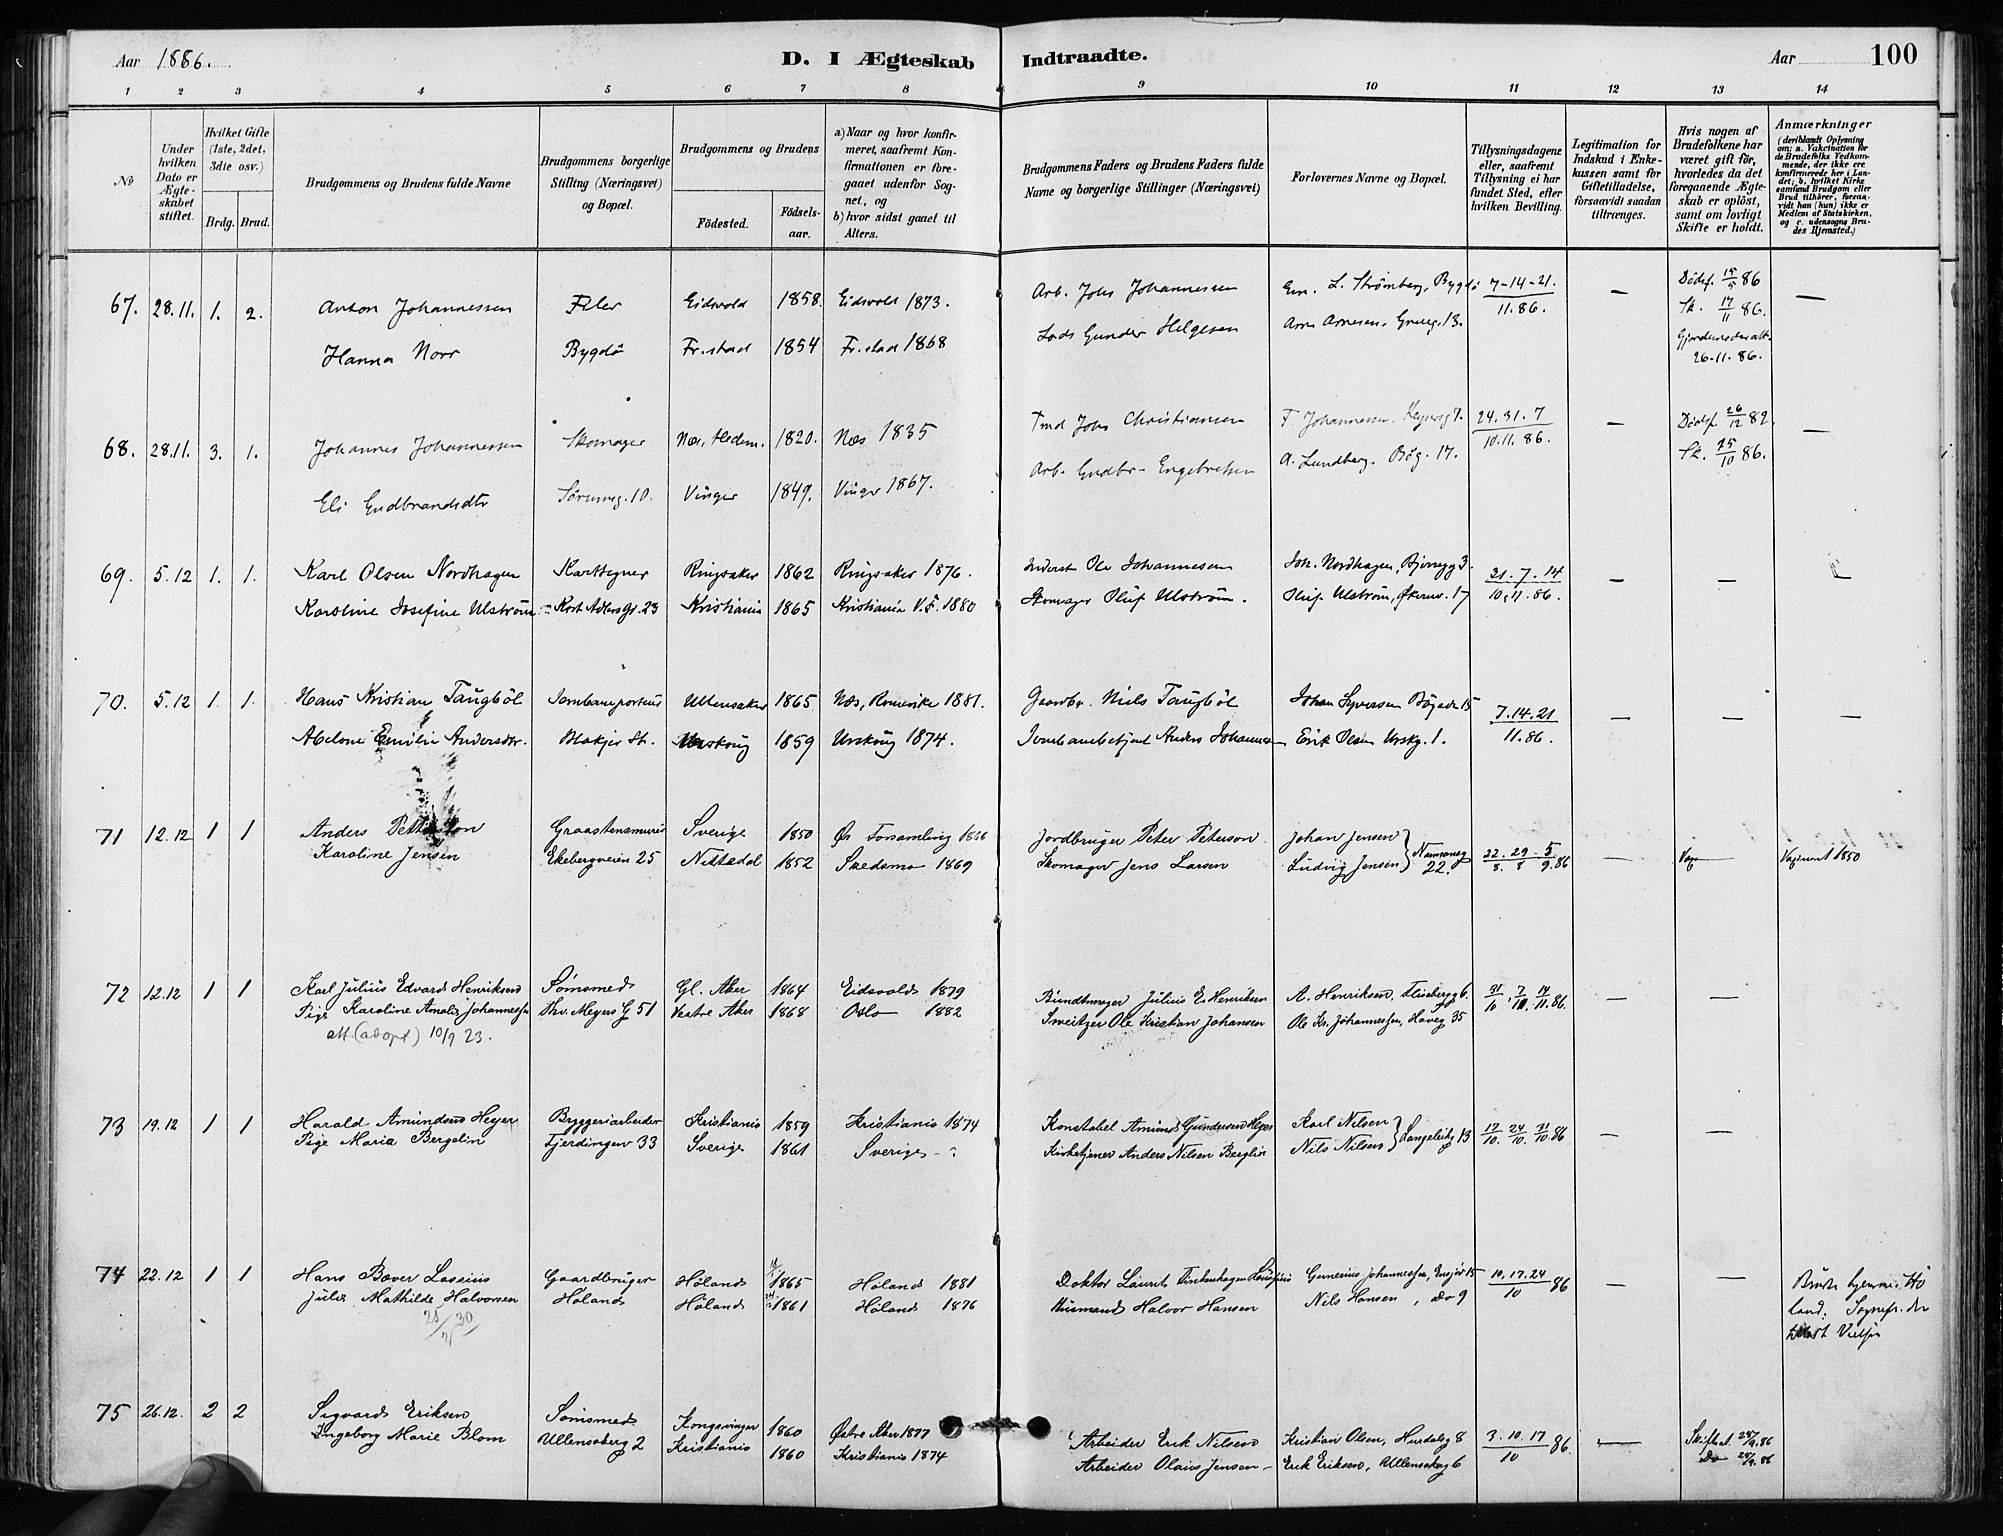 Aar 1886. D. I Ægteskab Indtraadte. Aar 100
1 2 3 4 5 6 7 8 9 10 11 12 13 14
№
Under hvilken Dato er Ægteskabet stiftet.
Hvilket Gifte (1ste, 2det, 3die osv.)
Brdg. Brud.
Brudgommens og Brudens fulde Navne
Brudgommens borgerlige Stilling (Næringsvei) og Bopæl.
Brudgommens og Brudens
Fødested. Fødselsaar.
a) Naar og hvor konfirmeret, saafremt Konfirmationen er foregaaet udenfor Sognet, og
b) hvor sidst gaaet til Alters.
Brudgommens Faders og Brudens Faders fulde Navne og borgerlige Stillinger (Næringsvei)
Forlovernes Navne og Bopæl.
Tillysningsdagene eller, saafremt Tillysning ei har fundet Sted, efter hvilken Bevilling.
Legitimation for Indskud i Enkekassen samt for Giftetilladelse, forsaavidt saadan tiltrænges.
Hvis nogen af Brudefolkene har været gift før, hvorledes da det foregaaende Ægteskab er opløst, samt om lovligt Skifte er holdt.
Anmærkninger (deriblandt Oplysning om: a. Vakcination for de Brudefolks Vedkommende, der ikke ere konfirmerede her i Landet; b. hvilket Kirkesamfund Brudgom eller Brud tilhører, forsaavidt han (hun) ikke er Medlem af Statskirken, og c. udensogns Brudes Hjemsted.)
67. 28.11. 1. 2. Anton Johannessen Filer Eidsvold 1858. Eidsvold 1873. Arb. Johs Johannessen Em. L. Strømberg, Bygdø 7-14-21. 11.86. — Dødsf. 15/5 86 —
Hanna Norr Bygdø Fr.stad 1854 Fr.stad 1868 Lods Gunder Helgesen Arne Arnesen. 13. Sk. 17/11 86.
26.11.86.
68. 28.11. 3. 1. Johannes Johannessen Skomager Næs, Hedm. 1820. Næs 1835 Tmd Johs Christiansen F. Johannesen, 7. 24.31.7 10.11.86. — Dødsf. 26/12 82. —
Eli Gudbrandsdtr Sørumg. 10. Vinger 1849. Vinger 1867. Arb. Gudbr. Engebretsen A. Lundberg. Bøg. 17. Sk. 25/10 86.
69. 5.12 1. 1. Karl Olsen Nordhagen Karttegner Ringsaker 1862 Ringsaker 1876. Inderst Ole Johannesen Joh. Nordhagen, Bjerregg 3. 31.7.14 10.11.86. — — —
Karoline Josefine Ulstrøm Kort Adlers G. 23 Kristiania 1865 Kristiania V.F. 1880 Skomager Oluf Ulstrøm. Oluf Ulstrøm, Økernv. 17
70. 5.12 1. 1. Hans Kristian Taugbøl Jernbaneporteur Ullensaker 1865 Næs, Romerike 1881. Gaardbr. Niels Taugbøl Johan Syversen Bøgade 15 7.14.21 11.86. — — —
Abelone Emilie Andersdtr. Blakjer St. Urskoug 1859 Urskoug 1874. Jernbanebetjent Anders Johannesen Erik Olsen Urskg. 1.
71 12.12 1 1 Anders Petterson Graastensmurer Sverige 1850 Øs Forsamling 1866 Jordbruger Peter Peterson Johan Jensen 22. 29. 5 8. 8 9.86 — —
Karoline Jensen Ekebergveien 25 Nittedal 1852 Skedsmo 1869 Skomager Jens Larsen Ludvig Jensen } Namsosg 22. Vaccineret 1850
72 12.12 1 1 Karl Julius Edvard Henriksen Sømsmed Gl. Aker 1864 Eidsvold 1879 Bundtmager Julius E. Henriksen A. Henriksen, Flisebergg 6. 31/10 7/11. 14/11.86. — —
Pige Karoline Amalie Johannessen Thv. Meyers G 51 Vestre Aker 1868 Oslo 1882 Sweitzer Ole Kristian Johansen Ole Kr. Johannessen, Haveg 35
att. (adopt) 10/9 23.
73 19.12 1 1 Harald Amundsen Heyer Bryggeriarbeider Kristiania 1859 Kristiania 1874 Konstabel Amund Gundersen Heyer Karl Nilsen 17/10. 24/10. 31/10 86 — —
Pige Maria Bergelin Fjerdingen 33 Sverige 1861 Sverige - ? Kirketjener Anders Nilsen Berglin Nils Nilsen } Langeleikg 13
74 22.12 1 1 Hans Bover Lassius Gaardbruger Høland 1865 Høland 1881 Doktor Laurits Tinkenhagen Gunerius Johannessen, Ensjøv 15 10.17.24 10 86 — — Bruden hjemme i Høland.
Julie Mathilde Halvorsen Høland Høland 1861 Høland 1876 Husmand Halvor Hansen Nils Hansen, do 9
25/4 30
75 26.12. 2 2 Sigvard Eriksen Sømsmed Kongsvinger 1860 Østre Aker 1877 Arbeider Erik Nilsen Kristian Olsen, Hurdalsg 8 3.10.17 10 86. — Skifteat. 28/9.86
Ingeborg Marie Blom Ullensakerg 2 Kristiania 1860 Kristiania 1874 Arbeider Olaus Jensen Erik Eriksen, Ullensakerg 6 Do 28/9.86